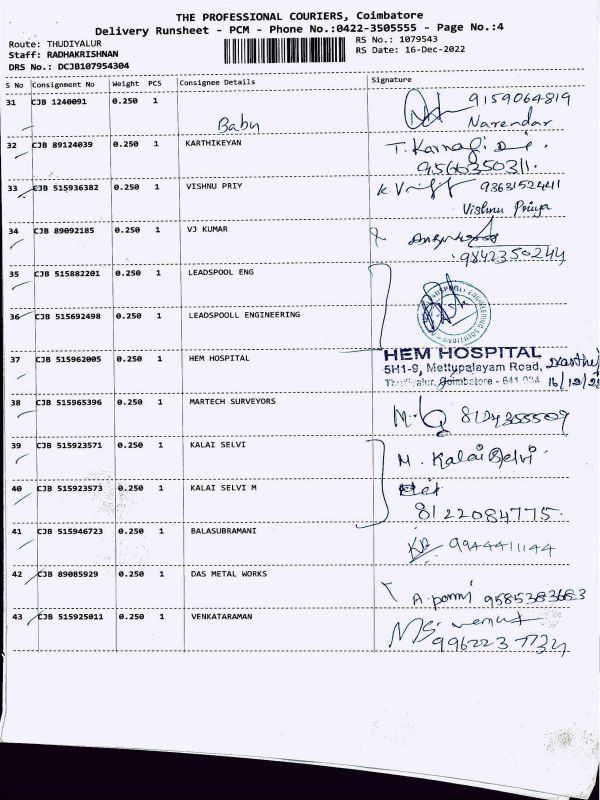 THE PROFESSIONAL COURIERS, Coimbatore
Delivery Runsheet - PCM - Phone No.:0422-3505555 - Page No.:4
Route: THUDIYALUR
RS No.: 1079543
Staff: RADHAKRISHNAN
RS Date: 16-Dec-2022
DRS No.: DCJB107954304
S No Consignment No Weight PCS Consignee Details Signature
31 CJB 1240091 0.250 1 Babu 9159064819
Narendar
32 CJB 89124039 0.250 1 KARTHIKEYAN T.
9566350311.
33 CJB 515936382 0.250 1 VISHNU PRIY 9363152441
Vishnu Priya
34 CJB 89092185 0.250 1 VJ KUMAR
9842350244
35 CJB 515882201 0.250 1 LEADSPOOL ENG
36 CJB 515692498 0.250 1 LEADSPOOLL ENGINEERING
37 CJB 515962005 0.250 1 HEM HOSPITAL HEM HOSPITAL
5H1-9, Mettupalayam Road,
Thudiyalur, Coimbatore - 641 034 16/12/22
38 CJB 515965396 0.250 1 MARTECH SURVEYORS 8124355509
39 CJB 515923571 0.250 1 KALAI SELVI M. Kalai Selvi
40 CJB 515923573 0.250 1 KALAI SELVI M
8122084775.
41 CJB 515946723 0.250 1 BALASUBRAMANI 9944411144
42 CJB 89085929 0.250 1 DAS METAL WORKS A. ponni 9585383683
43 CJB 515925011 0.250 1 VENKATARAMAN
9962237734